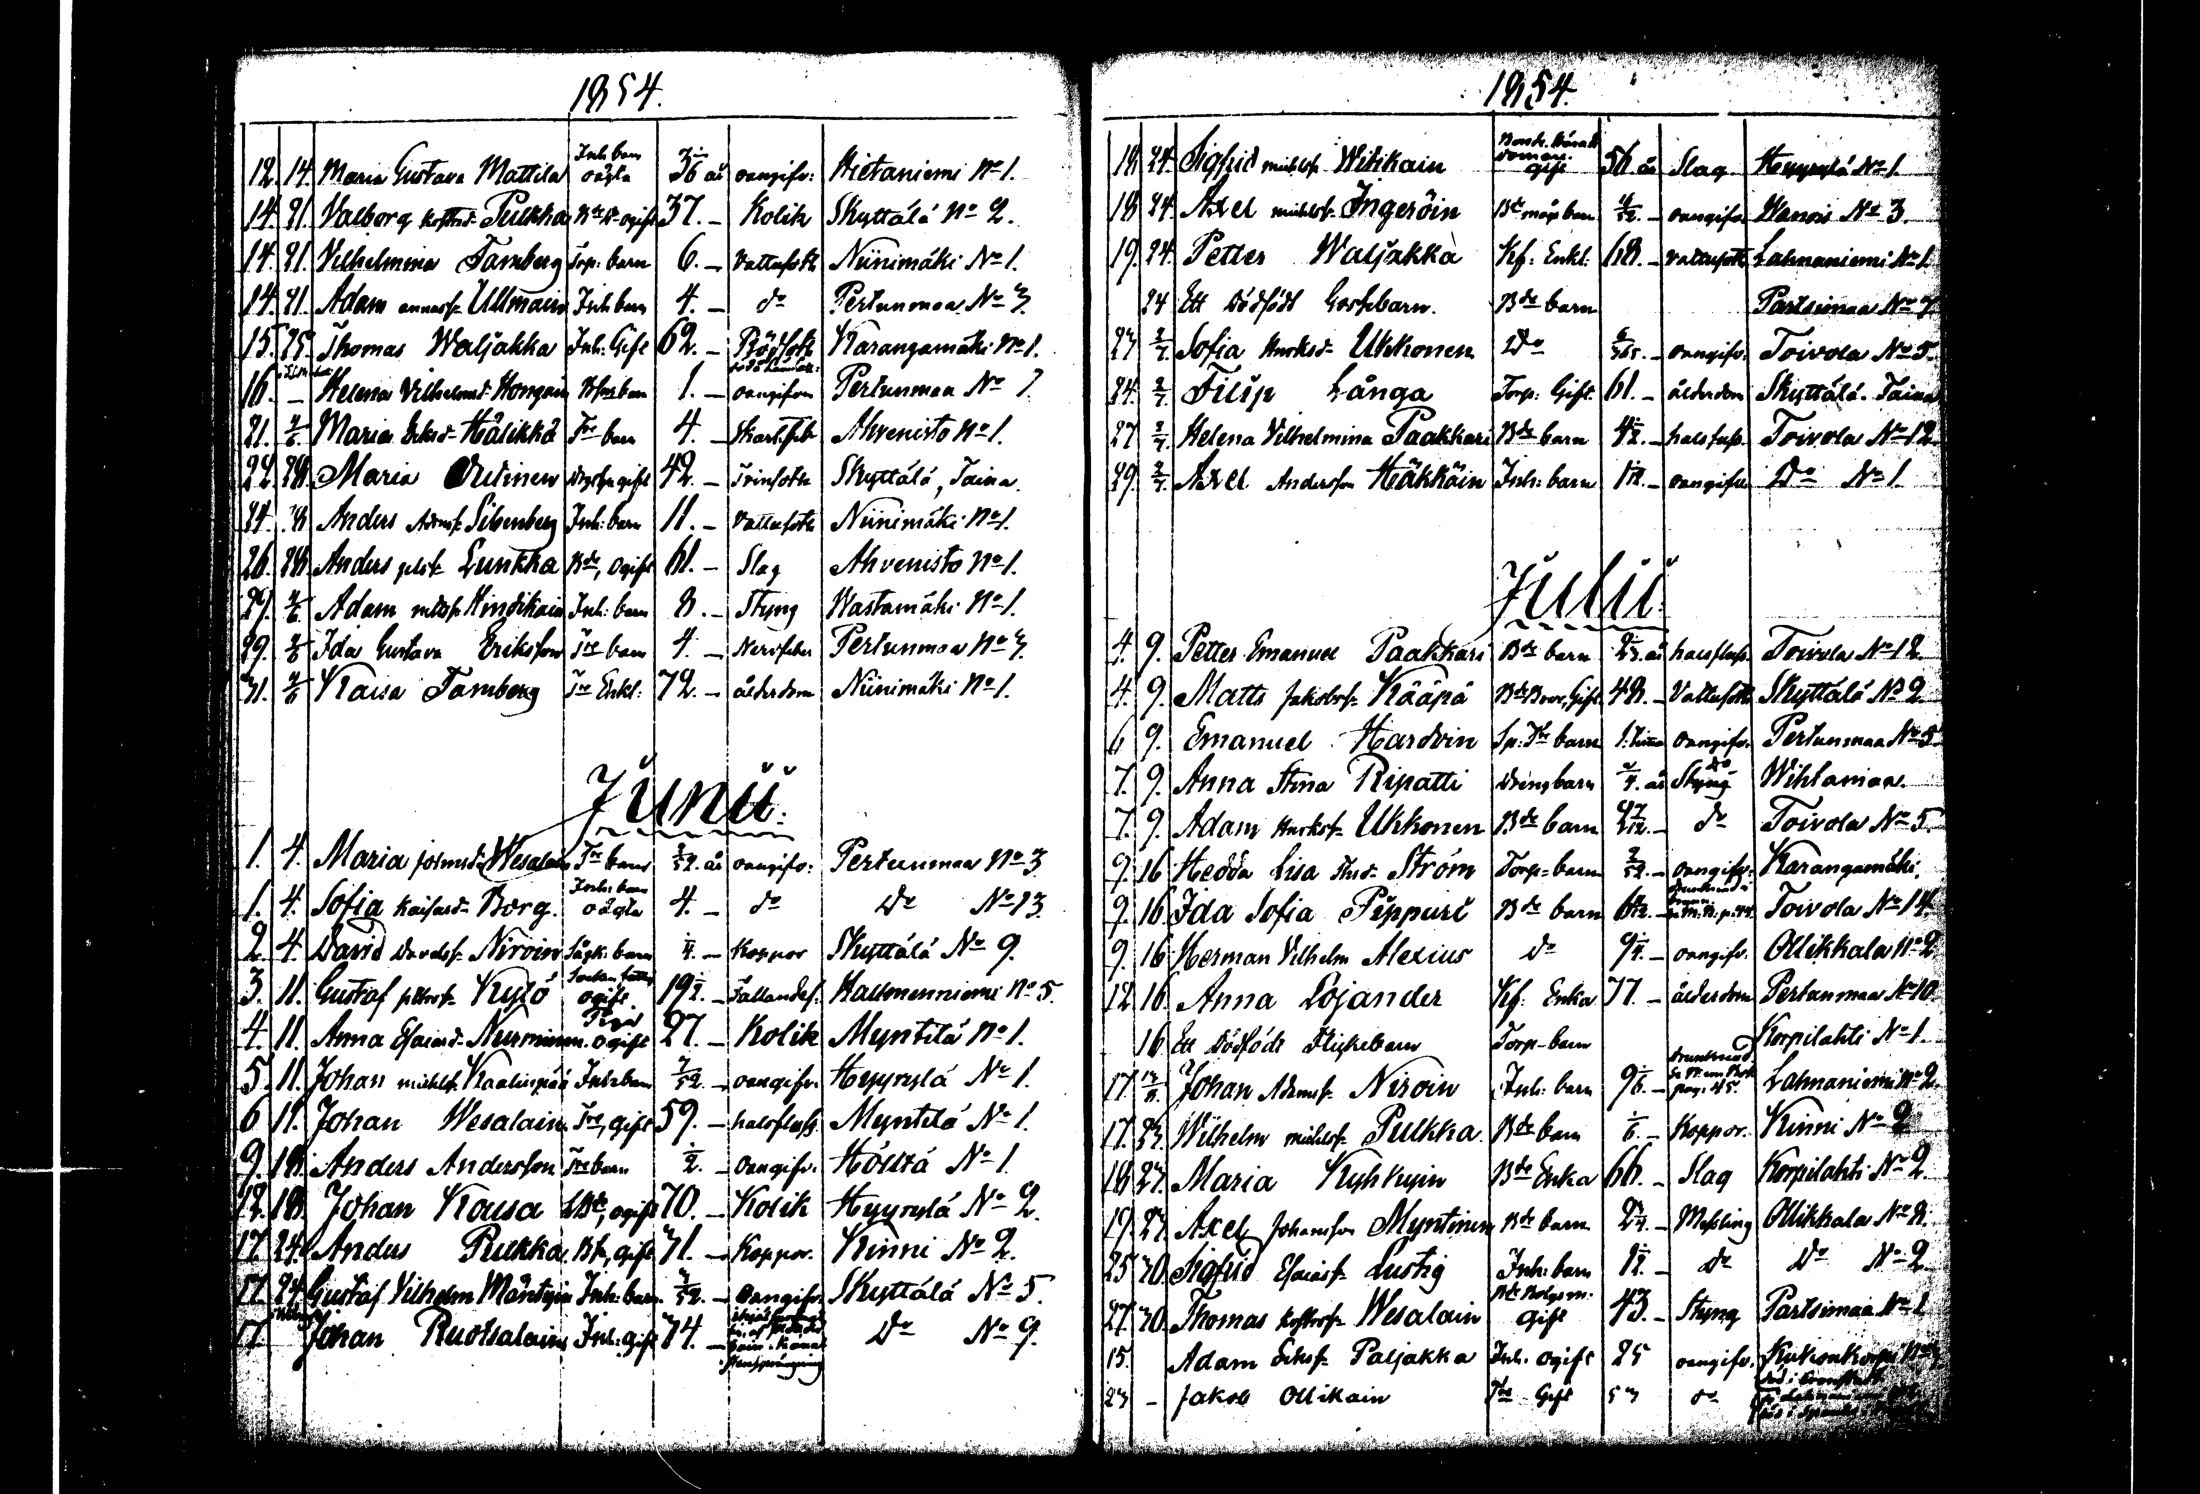 1854.
12. 14. Maria Gustava Mattila Inh. barn oägta 3 1/6 år oangifv: Hietaniemi No 1.
14. 21. Valborg Pulkka Bde D. ogift 37. - Kolik Skyttälä No 2.
14. 21. Vilhelmina Tamberg Trp: barn 6. - Vattusoth Niinimäki No 1.
14. 21. Adam Ullmain Inh barn 4. - do Pertunmaa No 3.
15. 25. Thomas Waljakka Inh: Gift 62. - Rödsoth Karangamäki No 1.
16. - Helena Vilhelmsd. Hongain barn 1. - oangifven Pertunmaa No 7.
21. 4/6 Maria Eriksd. Hälikkä Tre barn 4. - Skarl.feb Ahvenisto No 1.
22. 28. Maria Outinen gift 42. - Tvinsoth Skyttälä, Taina.
24. 28. Anders Adamss. Silfenberg Inh: barn 11. - Vattusoth Niinimäki No 1.
26. 28. Anders Lunkka Bde, Ogift 61. - Slag Ahvenisto No 1.
29. 4/6 Adam Hindikain Inh: barn 8. - Styng Wastamäki No 1.
29. 4/6 Ida Gustava Eriksson Tre barn 4. - Nervfeber Pertunmaa No 3.
31. 4/6 Kaisa Tamberg Tre Enkl: 72. - ålderdom Niinimäki No 1.
Junii:
1. 4. Maria Wesalain Tre barn 3/52. år oangifv: Pertunmaa No 3
1. 4. Sofia Kaisasd. Borg. Inh: barn oägta 4. - do Do No 13.
2. 4. David Davidss. Niroin barn 1/4. - Koppor Skyttälä No 9.
3. 11. Gustaf Kylö ogift. 19 1/2. - Fallandes. Hallmenniemi No 5.
4. 11. Anna Esaiasd. Nurminen Piga ogift 27. - Kolik Myntilä No 1.
5. 11. Johan michlss. Kaalinpää Inh: barn 3/52. - oangifv: Hyyrylä No 1.
6 11. Johan Wesalain Tre, gift 59. - halsfluss Myntilä No 1.
9. 18. Anders Andersson Tre barn 1/2. - oangifv: Hölttä No 1.
12. 18. Johan Kousa Bde, ogift 70. - Kolik Hyyrylä No 2.
17. 24. Anders Pulkka. Bde, gift 71. - Koppor. Kinni No 2.
17. 24. Gustaf Vilhelm Mäntyin Inh: barn. 3/52. - Oangifv: Skyttälä No 5.
17. Johan Ruotsalain Inh: gift 74. - Do No 9.
1854.
18. 24. Sigfrid michlss. Witikain gift 56. år Slag Hyyrylä No 1.
18 24. Axel michlss. Ingeröin barn 4/52. - oangifv: Wanois No 3.
19. 24. Petter Waljakka Kf: Enkl: 68. - vattusoth Lahnaniemi No 1.
24 Ett Dödfödt Gossebarn. Bde barn Partsimaa No 7.
27 2/7. Sofia Ukkonen Do 6/365. - oangifv. Toivola No 5.
24. 2/7. Filip Långa Torp: Gift. 61. - ålderdom Skyttälä. Taina
27 2/7. Helena Vilhelmina Paakkari Bde barn 4 1/2. - halsfluss. Toivola No 12.
29. 2/7. Axel Andersson Häkkäin Inh: barn oangifv: Do No 1.
Julii:
4. 9. Petter Emanuel Paakkari Bde barn halsfluss. Toivola No 12.
4. 9. Matts Jakobss. Kääpä Bde Gift 48. - Vattusoth Skyttälä No 2.
6 9. Emanuel Hardvin barn 1: timma oangifv: Pertunmaa No 5.
7. 9. Anna Stina Ripatti Drengbarn år Styng Wihlamaa.
7. 9. Adam Ukkonen Bde barn do Toivola No 5.
9. 16 Hedda Lisa Ström Torp= barn 2/52. - oangifv: Karangamäki.
9. 16. Ida Sofia Pippuri Bde barn Toivola No 14.
9. 16 Herman Vilhelm Alexius do 9 1/4. - oangifv. Ollikkala No 2.
12. 16. Anna Lojander Kf: Enka 77. - ålderdom Pertunmaa No 10.
16. Ett Dödfödt Flickebarn Torp-barn Korpilahti No 1.
17. Johan Adamss. Niroin Inh: barn Lahnaniemi No 2.
17. 23. Wilhelm michlss. Pulkka. Bde barn 1/6. - Koppor. Kinni No 2
18 23. Maria Kyhkyin Bde Enka 66. - Slag Korpilahti No 2.
19. 23. Axel Johansson Myntinen Bde barn Messling Ollikkala No 2.
25 30. Sigfrid Esaiass. Lustig Inh: barn 1 1/2. - do Do No 2
27. 30. Thomas Wesalain gift 43. - Styng Partsimaa No 1
15. Adam Erikss. Paljakka Inh. ogift 25 oangifv.
23 - Jakob Ollikain Tre Gift 53 do